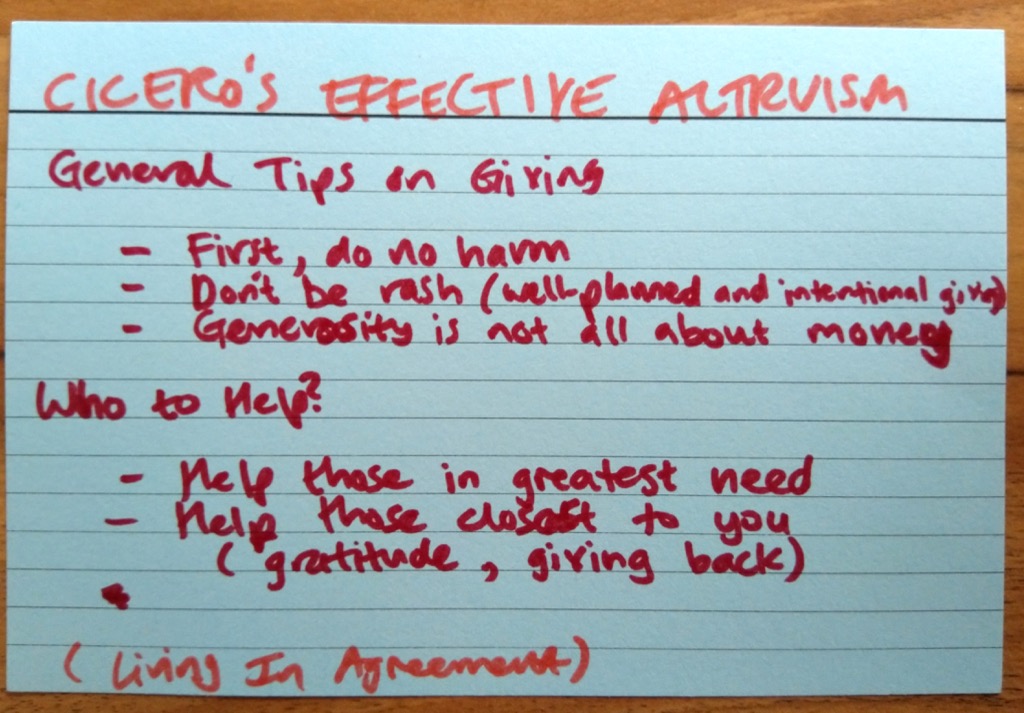 CICERO'S EFFECTIVE ALTRUISM
General Tips on Giving
- First, do no harm
- Don't be rash (well-planned and intentional giving)
- Generosity is not all about money
Who to Help?
- Help those in greatest need
- Help those closest to you
(gratitude, giving back)
(Living In Agreement)